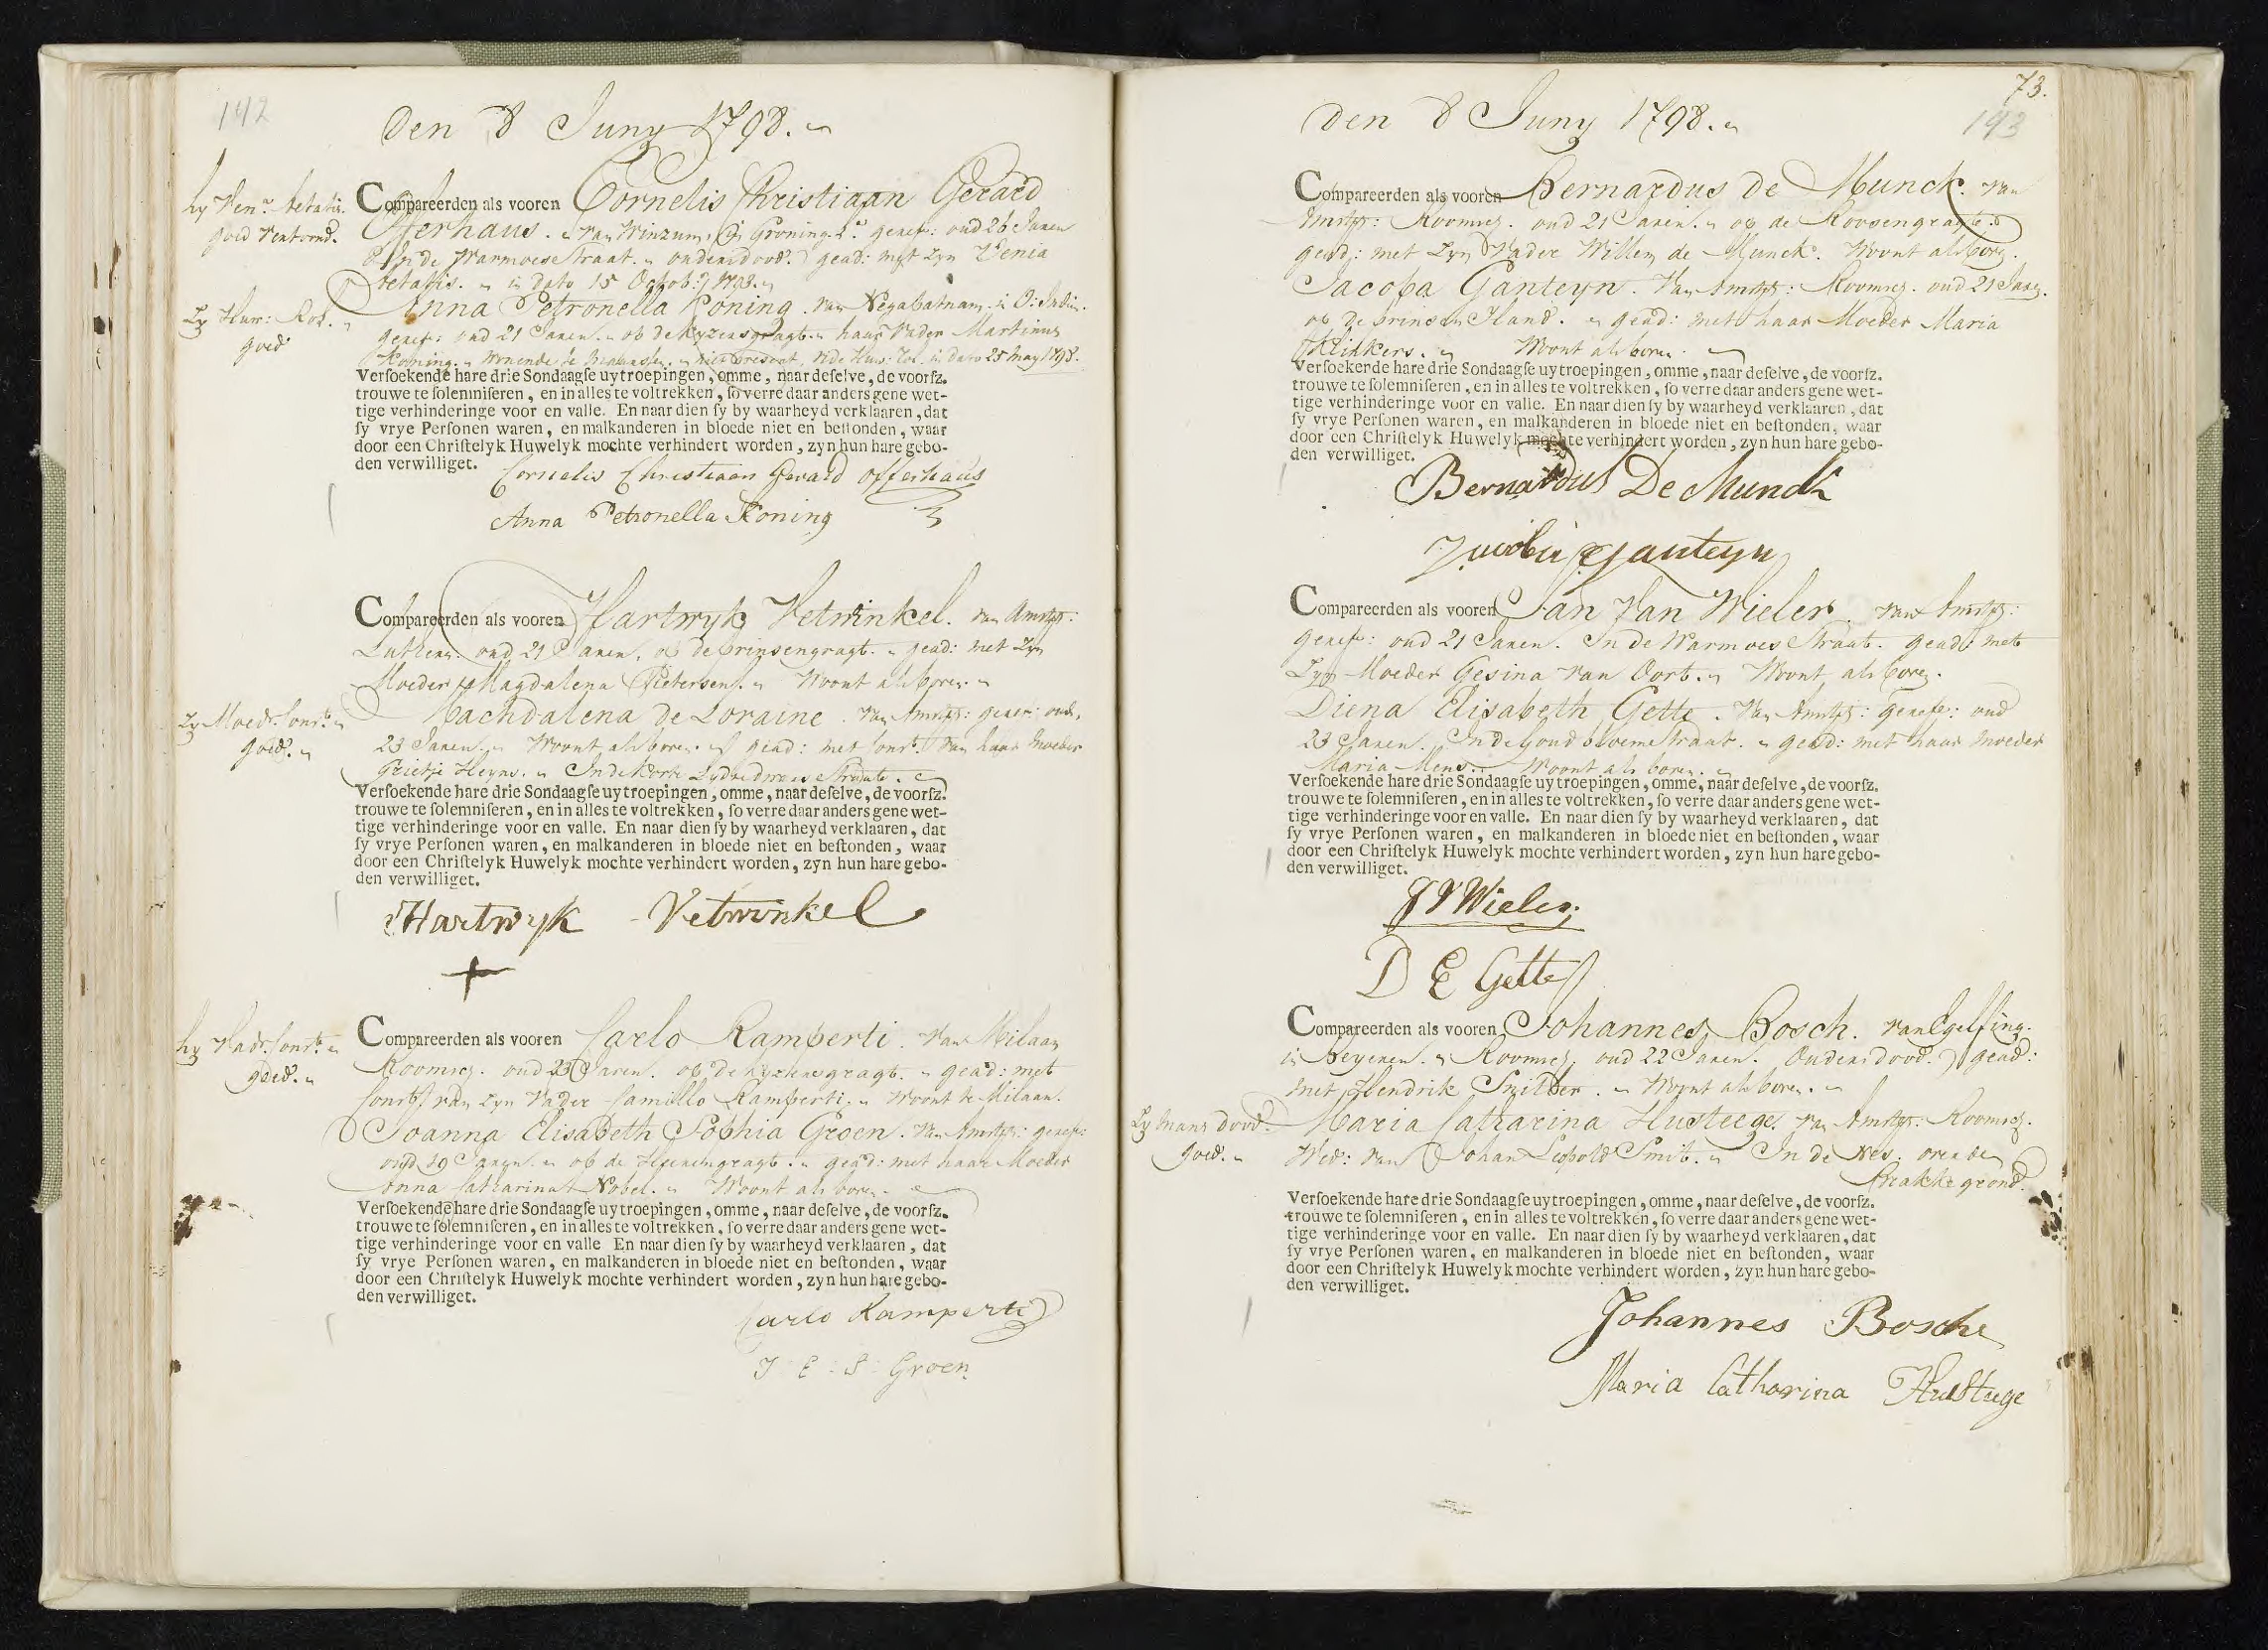 192
den 8 Juny 1798.
hy Ven.ᵃ Aetatis.
goed vertoond.
Compareerden als vooren Cornelis Christiaan Gerard
Offerhaus. van Winzum, in Groning. geref: oud 26 Jaaren
in de Warmoesstraat. ouders dood. gead: met zyn Venia
Aetatis. in dato 15 Octob:
Zy Huw: Kos.
goed
Anna Petronella Koning. van Negabatnam. in O: Indien.
geref: oud 21 Jaaren. op de Kyzersgragt. haar Vader Martinus
Koning. Wonende te niet present, vide Huw: in dato 25 May 1798.
Verſoekende hare drie Sondaagſe uytroepingen, omme, naar deſelve, de voorſz.
trouwe te ſolemniſeren, en in alles te voltrekken, ſo verre daar anders gene wet-
tige verhinderinge voor en valle. En naar dien ſy by waarheyd verklaaren, dat
ſy vrye Perſonen waren, en malkanderen in bloede niet en beſtonden, waar
door een Chriſtelyk Huwelyk mochte verhindert worden, zyn hun hare gebo-
den verwilliget.
Cornelis Christiaan Gerard Offerhaus
Anna Petronella Koning
Compareerden als vooren Hartwyk Vetwinkel. van Amst:
Luthers. oud 21 Jaaren. op de Prinsengragt. gead: met zyn
Moeder Magdalena Pietersen. Woont als boven.
Zy Moed.ˢ Cons.ᵗ
goed.
Machdalena de Loraine. van Amst: geref: oud
23 Jaaren. Woont als boven. gead: met Cons.ᵗ van haar moeder
Grietje Heyns. In de korte Lydsedwars Straate.
Verſoekende hare drie Sondaagſe uytroepingen, omme, naar deſelve, de voorſz.
trouwe te ſolemniſeren, en in alles te voltrekken, ſo verre daar anders gene wet-
tige verhinderinge voor en valle. En naar dien ſy by waarheyd verklaaren, dat
ſy vrye Perſonen waren, en malkanderen in bloede niet en beſtonden, waar
door een Chriſtelyk Huwelyk mochte verhindert worden, zyn hun hare gebo-
den verwilliget.
Hartwyk Vetwinkel
+
hy Vad.ˢ Cons.ᵗ
goed.
Compareerden als vooren Carlo Ramperti. van Milaan
Roomsch. oud 23 Jaren. op de Kyzersgragt. gead: met
Cons.ᵗ van zyn Vader Camillo Ramperti. Woont te Milaan.
Joanna Elisabeth Sophia Groen. van Amst: geref:
oud 19 Jaaren. op de Heerengragt. gead: met haar Moeder
Anna Catharina Nobel. Woont als boven.
Verſoekende hare drie Sondaagſe uytroepingen, omme, naar deſelve, de voorſz.
trouwe te ſolemniſeren, en in alles te voltrekken, ſo verre daar anders gene wet-
tige verhinderinge voor en valle En naar dien ſy by waarheyd verklaaren, dat
ſy vrye Perſonen waren, en malkanderen in bloede niet en beſtonden, waar
door een Chriſtelyk Huwelyk mochte verhindert worden, zyn hun hare gebo-
den verwilliget.
Carlo Ramperti
J: E: S: Groen
73.
193
den 8 Juny 1798.
Compareerden als vooren Bernardus de Munck. van
Amst: Roomsch. oud 21 Jaren. op de Roosengragt.
gead: met zyn Vader Willem de Munck. Woont als boven.
Jacoba Ganteyn. van Amst: Roomsch. oud 21 Jaren.
op de Prinsen Yland. gead: met haar Moeder Maria
Klinkers. Woont als boven.
Verſoekende hare drie Sondaagſe uytroepingen, omme, naar deſelve, de voorſz.
trouwe te ſolemniſeren, en in alles te voltrekken, ſo verre daar anders gene wet-
tige verhinderinge voor en valle. En naar dien ſy by waarheyd verklaaren, dat
ſy vrye Perſonen waren, en malkanderen in bloede niet en beſtonden, waar
door een Chriſtelyk Huwelyk mochte verhindert worden, zyn hun hare gebo-
den verwilliget.
Bernardus De Munck
Jacoba Ganteyn
Compareerden als vooren Jan van Wieler. van Amst:
geref: oud 21 Jaren. In de Warmoes Straat. gead: met
zyn Moeder Gesina van Oort. Woont als boven.
Diena Elisabeth Gette. van Amst: geref: oud
23 Jaren. In de Goudsbloemstraat. gead: met haar moeder
Maria Mens. Woont als boven.
Verſoekende hare drie Sondaagſe uytroepingen, omme, naar deſelve, de voorſz.
trouwe te ſolemniſeren, en in alles te voltrekken, ſo verre daar anders gene wet-
tige verhinderinge voor en valle. En naar dien ſy by waarheyd verklaaren, dat
ſy vrye Perſonen waren, en malkanderen in bloede niet en beſtonden, waar
door een Chriſtelyk Huwelyk mochte verhindert worden, zyn hun hare gebo-
den verwilliget.
J V Wieler
D E Gette
Compareerden als vooren Johannes Bosch. van Egelfing.
in Beyeren. Roomsch. oud 22 Jaren. Ouders dood. gead:
met Hendrik Snitker. Woont als boven.
Zy Mans dood.
goed.
Maria Catharina Husteege. van Amst: Roomsch.
Wed: van Johan Leopold Smit. In de Nes. over de
Brakke grond.
Verſoekende hare drie Sondaagſe uytroepingen, omme, naar deſelve, de voorſz.
trouwe te ſolemniſeren, en in alles te voltrekken, ſo verre daar anders gene wet-
tige verhinderinge voor en valle. En naar dien ſy by waarheyd verklaaren, dat
ſy vrye Perſonen waren, en malkanderen in bloede niet en beſtonden, waar
door een Chriſtelyk Huwelyk mochte verhindert worden, zyn hun hare gebo-
den verwilliget.
Johannes Bosch
Maria Catharina Husteege